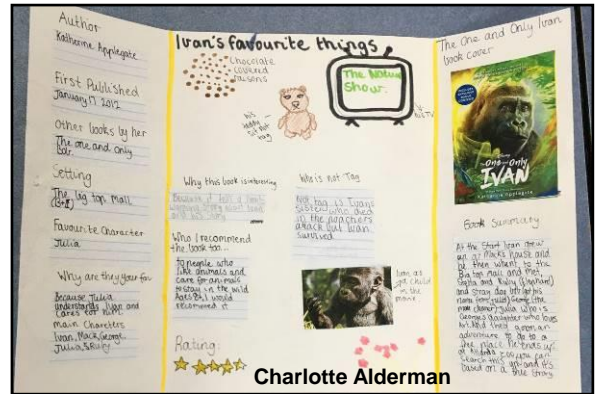 Author
Katherine Applegate
First Published
January 17 2012
Other books by her
The one and only
Bob.
Setting
The big top mall
Favourite Character
Julia
Why are they your fav
Because Julia
understands Ivan and
cares for him.
main Charecters
Ivan, Mack, George
Julia, & Ruby
Ivan's favourite things
Chocolate
covered
raisons
his
not
tag
The Nature
Show.
his TV
Why this book is interesting
Because it tell a heart
warming story about Ivan
and his story
Who is not Tag
Not tag is Ivans
sister who died
in the poachers
attack but Ivan
survived
Who I recommend
the book too...
to people who
like animals and
care for animals
to stay in the wild
Ages 8+, I would
recommend it
Ivan as
a child
in the
movie
Rating:
The One and Only Ivan
book cover
The
One and Only
IVAN
Katherine Applegate
Book Summary
At the start Ivan grew
up at Macks house and
he then went to the
Big top mall and met,
Stella and Ruby (Elephants)
and stray dog
George (the
Julia who is
Georges daughter who loves
Art. And then go on an
adventure to go to a
place he ends up
at zoo you can
search this up and it's
based on a true story
Charlotte Alderman